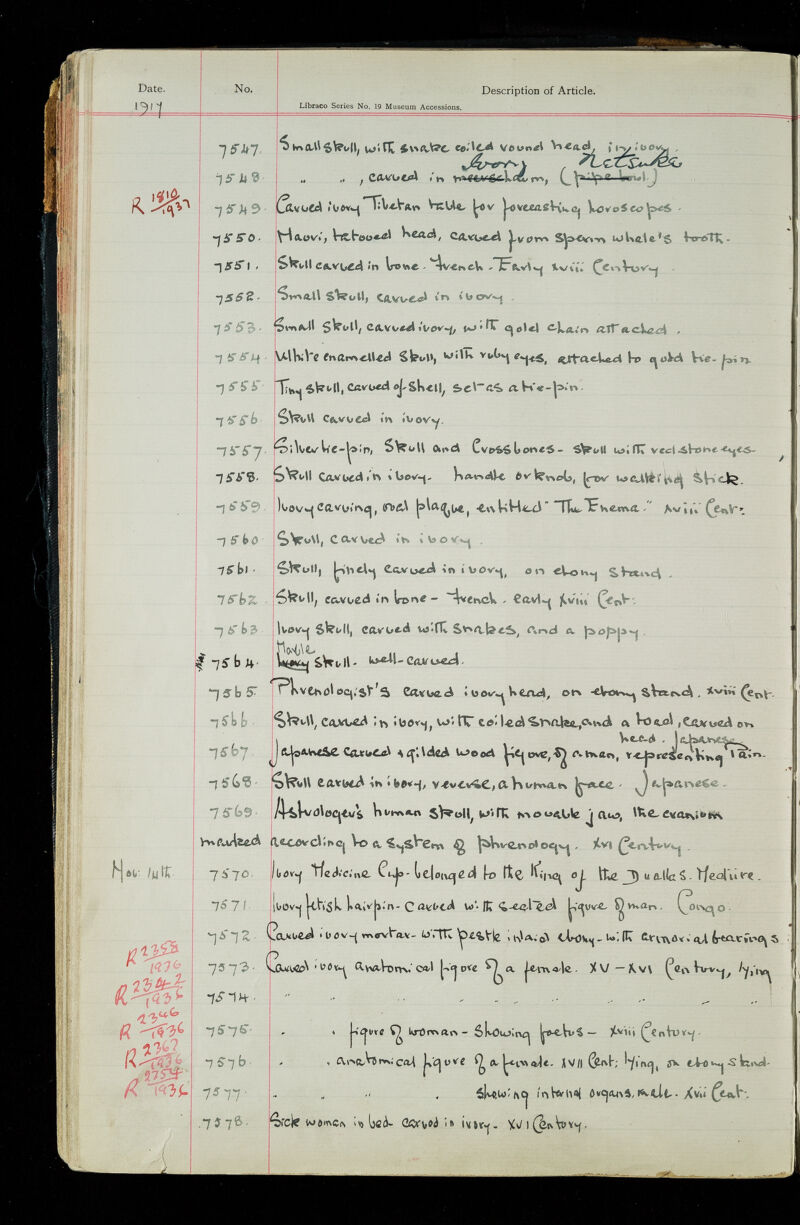 Date. No. Description of Article.
1917 Libraco Series No. 19 Museum Accessions.
7547. Small skull, with snake coiled round head, in ivory.
Ivory Netsuke
7548 " " , carved in meerschaum, (pipe bowl.)
R 1810/1937 7549 Carved ivory Tibetan table for forecasting horoscopes.
7550. Maori, tattooed head, carved from sperm whale's tooth.
7551. Skull carved in bone. French. Early xvii Century.
7552. Small skull, carved in ivory.
7553. Small skull, carved ivory, with gold chain attached.
7554 White enamelled skull, with ruby eyes, attached to gold tie-pin.
7555 Tiny skull, carved of shell, set as a tie-pin.
7556 Skull carved in ivory.
7557. Silver tie-pin, Skull and Crossbones - skull with red stone eyes.
7558. Skull carved in ivory. handle or knob, for walking stick.
7559. Ivory carving, oval plaque, entitled "The Enema." xviii Cent:.
7560 Skull, carved in ivory.
7561. Skull, finely carved in ivory, on ebony stand.
7562. Skull, carved in bone - French. early xviii Cent:
7563 Ivory skull, carved with snakes, and a poppy.
Marble
7564. Ivory skull. well-carved.
7565. Phrenologist's carved ivory head, on ebony stand. xviii Cent.
7566. Skull, carved in ivory, with coiled snake, and a toad, carved on
head. Japanese
7567 Japanese carved & gilded wood figure, of a man, representing "Pain.
7568. Skull carved in ivory, reverse, a human face. Japanese.
7569. Astrologer's human skull, with movable jaw, the cranium
marked according to a system of phrenology. xvi Century.
Nov: 14th 7570. Ivory Medicine Cup. belonged to the King of the Duallas. Medicine.
7571 Ivory fetish hairpin. Carved with seated figure of man. Congo.
R 2358/1936 7572 Carved ivory mortar. with pestle inlaid ebony. with armorial bearings
R 2342/1936 7573. Carved ivory anatomical figure of a female. XV - XVI Century, lying
7574. " " " " " " "
R 2346/1936 7575. " " figure of woman - showing foetus - xviii Century.
R 2367/1936 7576. " " anatomical figure of a female. XVII Cent; lying, on ebony stand.
R 2754/1936 7577. " " " " showing internal organs, male. xvii Cent:.
7578. Sick women in bed. carved in ivory. XVI Century.